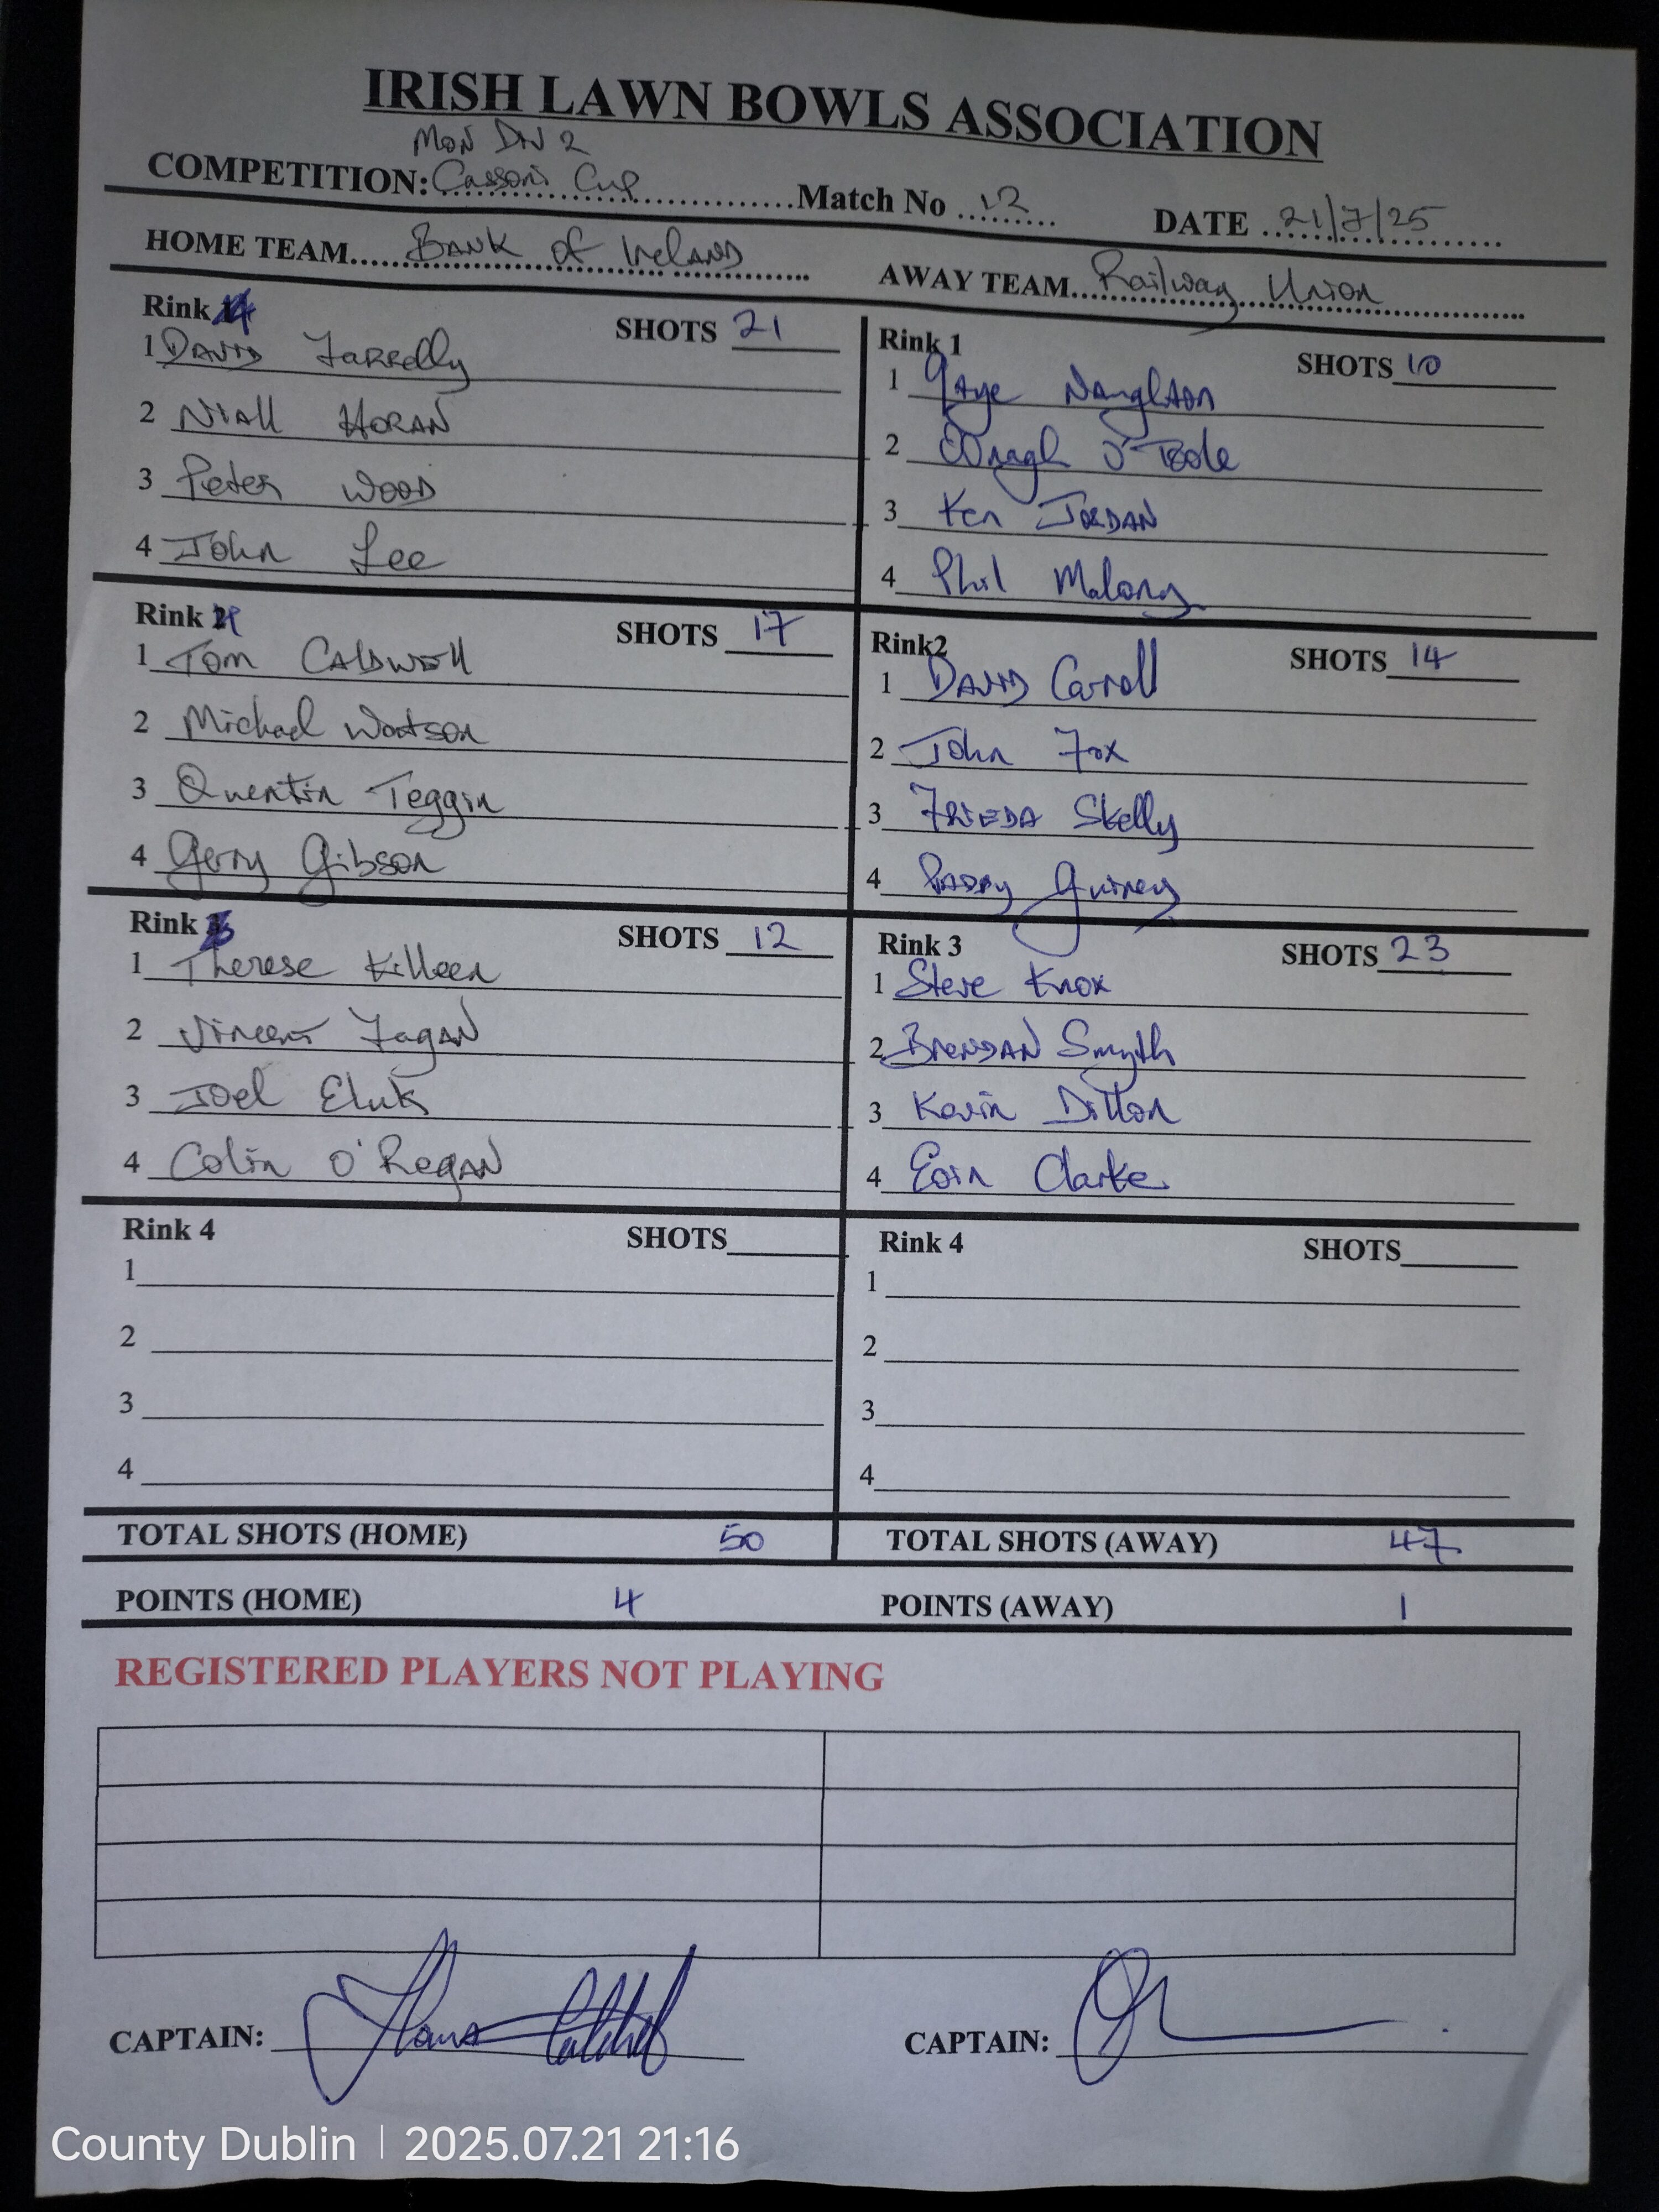 IRISH LAWN BOWLS ASSOCIATION
Mon Div 2
COMPETITION: Cassoni Cup Match No 12 DATE 21/7/25
HOME TEAM Bank of Ireland AWAY TEAM Railway Union
Rink 4 SHOTS 21
1 David Farrelly
2 Niall Horan
3 Peter Wood
4 John Lee
Rink 1 SHOTS 10
1 Gaye Naughton
2 Oonagh O'Toole
3 Ken Jordan
4 Phil Malony
Rink SHOTS 17
1 Tom Caldwell
2 Michael Watson
3 Quentin Teggin
4 Gerry Gibson
Rink2 SHOTS 14
1 David Carroll
2 John Fox
3 Frieda Skelly
4 Paddy Guiney
Rink SHOTS 12
1 Therese Killeen
2 Vincent Fagan
3 Joel
4 Colin O'Regan
Rink 3 SHOTS 23
1 Steve Knox
2 Brendan Smyth
3 Kevin Dillon
4 Eoin Clarke
Rink 4 SHOTS
1
2
3
4
Rink 4 SHOTS
1
2
3
4
TOTAL SHOTS (HOME) 50 TOTAL SHOTS (AWAY) 47
POINTS (HOME) 4 POINTS (AWAY) 1
REGISTERED PLAYERS NOT PLAYING
CAPTAIN: CAPTAIN:
County Dublin | 2025.07.21 21:16